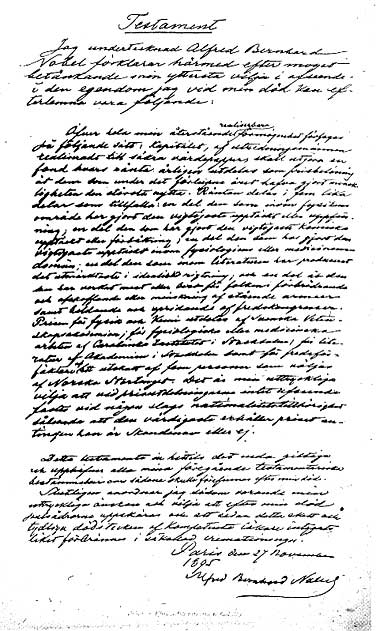 Testament
Jag undertecknad Alfred Bernhard
Nobel förklarar härmed efter moget
betänkande min yttersta vilja i afseende
å den egendom jag vid min död kan ef-
terlemna vara följande:
realiserbara
Öfver hela min återstående förmögenhet förfogas
på följande sätt: kapitalet, af utredningsmännen
realiserade till säkra värdepapper, skall utgöra en
fond hvars ränta årligen utdelas som prisbelöning
åt dem som under det förlupne året hafva gjort mensk-
ligheten den största nytta. Räntan delas i fem lika
delar som tillfalla: en del den som inom fysikens
område har gjort den vigtigaste upptäckt eller uppfin-
ning; en del den som har gjort den vigtigaste kemiska
upptäckt eller förbättring; en del den som har gjort den
vigtigaste upptäckt inom fysiologiens eller medicinens
domän; en del den som inom litteraturen har producerat
det utmärktaste i idealisk rigtning; och en del åt den
som har verkat mest eller best för folkens förbrödrande
och afskaffande eller minskning af stående armeer
samt bildande och spridande af fredskongresser.
Prisen för fysik och kemi utdelas af Svenska Veten-
skapsakademien; för fysiologiska eller medicinska
arbeten af Carolinska Institutet i Stockholm; för lite-
ratur af Akademien i Stockholm samt för fredsför-
fäktare af ett utskott af fem personer som väljas
af Norska Stortinget. Det är min uttryckliga
vilja att vid prisutdelningarne intet afseende
fästes vid någon slags nationalitetstillhörighet
sålunda att den värdigaste erhåller priset an-
tingen han är Skandinav eller ej.
Detta testamente är hittills det enda giltiga
och upphäfver alla mina föregående testamentariska
bestämmelser om sådana skulle förefinnas efter min död.
Slutligen anordnar jag såsom varande min
uttryckliga önskan och vilja att efter min död
pulsådrorna uppskäras och att sedan detta skett och
tydliga dödstecken af kompetenta läkare intygats
liket förbrännes i såkallad cremationsugn.
Paris den 27 November
1895
Alfred Bernhard Nobel